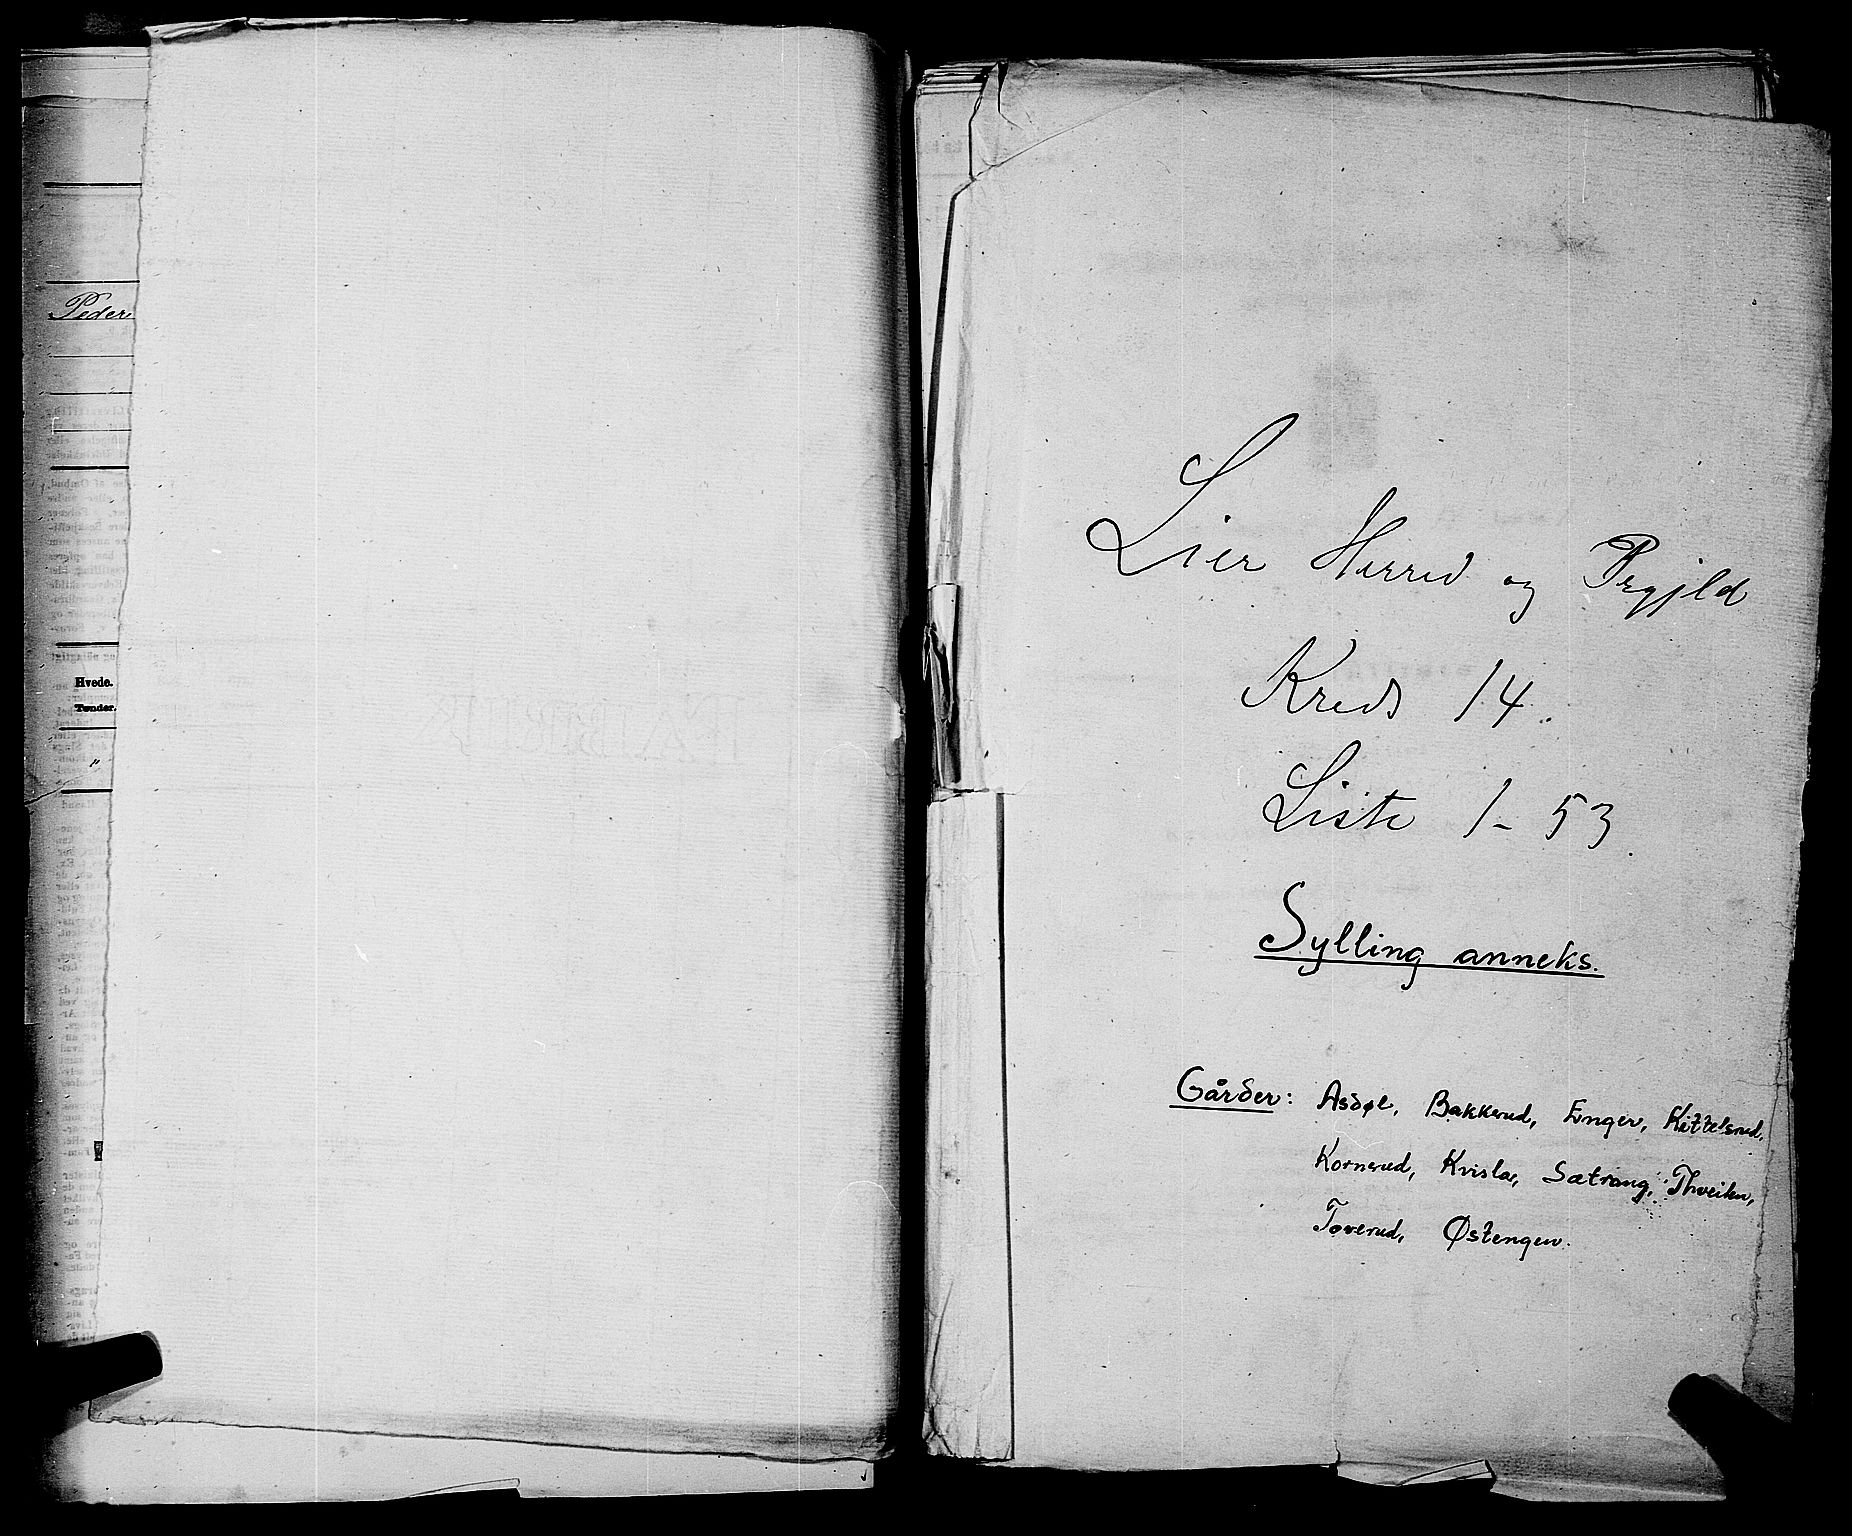 Peder
Hvede.
Tønder.
Lier Herred og Prgjld
Kreds 14.
Liste 1-53.
Sylling anneks.
Gårder: Asdøl, Bakkerud, Enger, Kittelsrud,
Kornerud, Kvisla, Sætrang, Thveiten,
Toverud, Østengen.